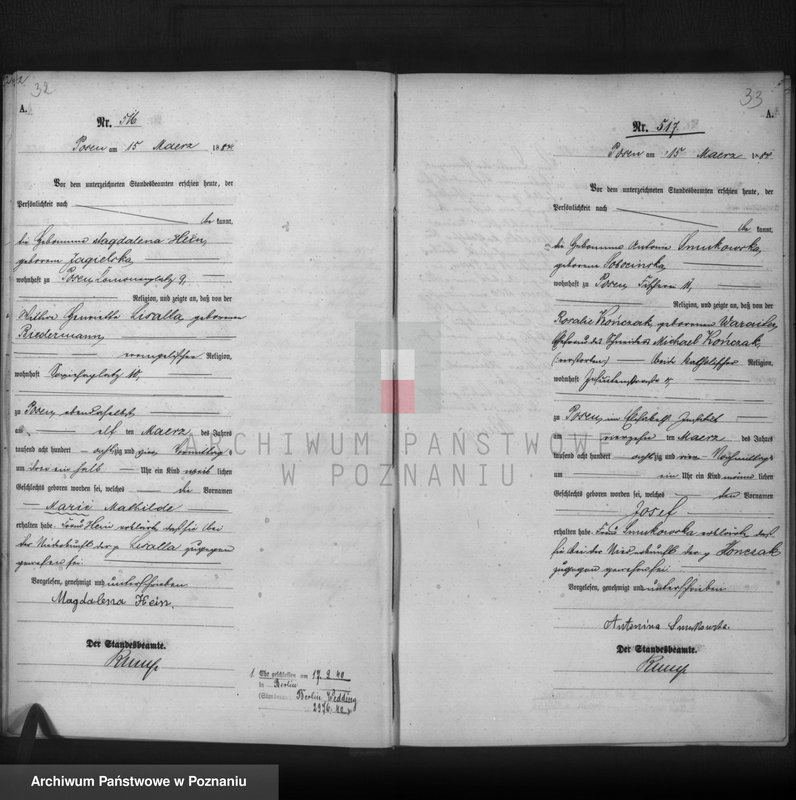 32
A.
Nr. 516
Posen am 15 Maerz 1884
Vor dem unterzeichneten Standesbeamten erschien heute, der
Persönlichkeit nach
be kannt,
die Hebamme Magdalena Hein,
geborene Jagielska
wohnhaft zu Posen, 9,
Religion, und zeigte an, daß von der
Wittwe Henriette Liwalla, geborenen
Riedermann,
evangelischer Religion,
wohnhaft Sapiehaplatz 10,
zu Posen ebendaselbst
am elf ten Maerz des Jahres
tausend acht hundert achtzig und vier Vormittags
um drei ein halb Uhr ein Kind weib lichen
Geschlechts geboren worden sei, welches die Vornamen
Marie Mathilde
erhalten habe. Frau Hein erklärte, daß sie bei
der Niederkunft der p. Liwalla zugegen
gewesen sei.
Vorgelesen, genehmigt und unterschrieben
Magdalena Hein.
Der Standesbeamte.
1. Ehe geschlossen am 17.2.40
in Berlin
Berlin Wedding
33
A.
Nr. 517.
Posen am 15 Maerz 1884
Vor dem unterzeichneten Standesbeamten erschien heute, der
Persönlichkeit nach
be kannt,
die Hebamme Antonie Smukowska,
geborene Sobocinska
wohnhaft zu Posen, 11,
Religion, und zeigte an, daß von der
Rosalie Kończak, geborenen
Ehefrau des Schneiders Michael Kończak
(verstorben) beide katholischer Religion,
wohnhaft Jesuitenstraße
zu Posen, im Elisabeth Institut
am vierzehn ten Maerz des Jahres
tausend acht hundert achtzig und vier Nachmittags
um ein Uhr ein Kind männ lichen
Geschlechts geboren worden sei, welches den Vornamen
Josef
erhalten habe. Frau Smukowska erklärte, daß
sie bei der Niederkunft der p. Kończak
zugegen gewesen sei
Vorgelesen, genehmigt und unterschrieben
Antonina Smukowska.
Der Standesbeamte.
ARCHIWUM PAŃSTWOWE
W POZNANIU
Archiwum Państwowe w Poznaniu